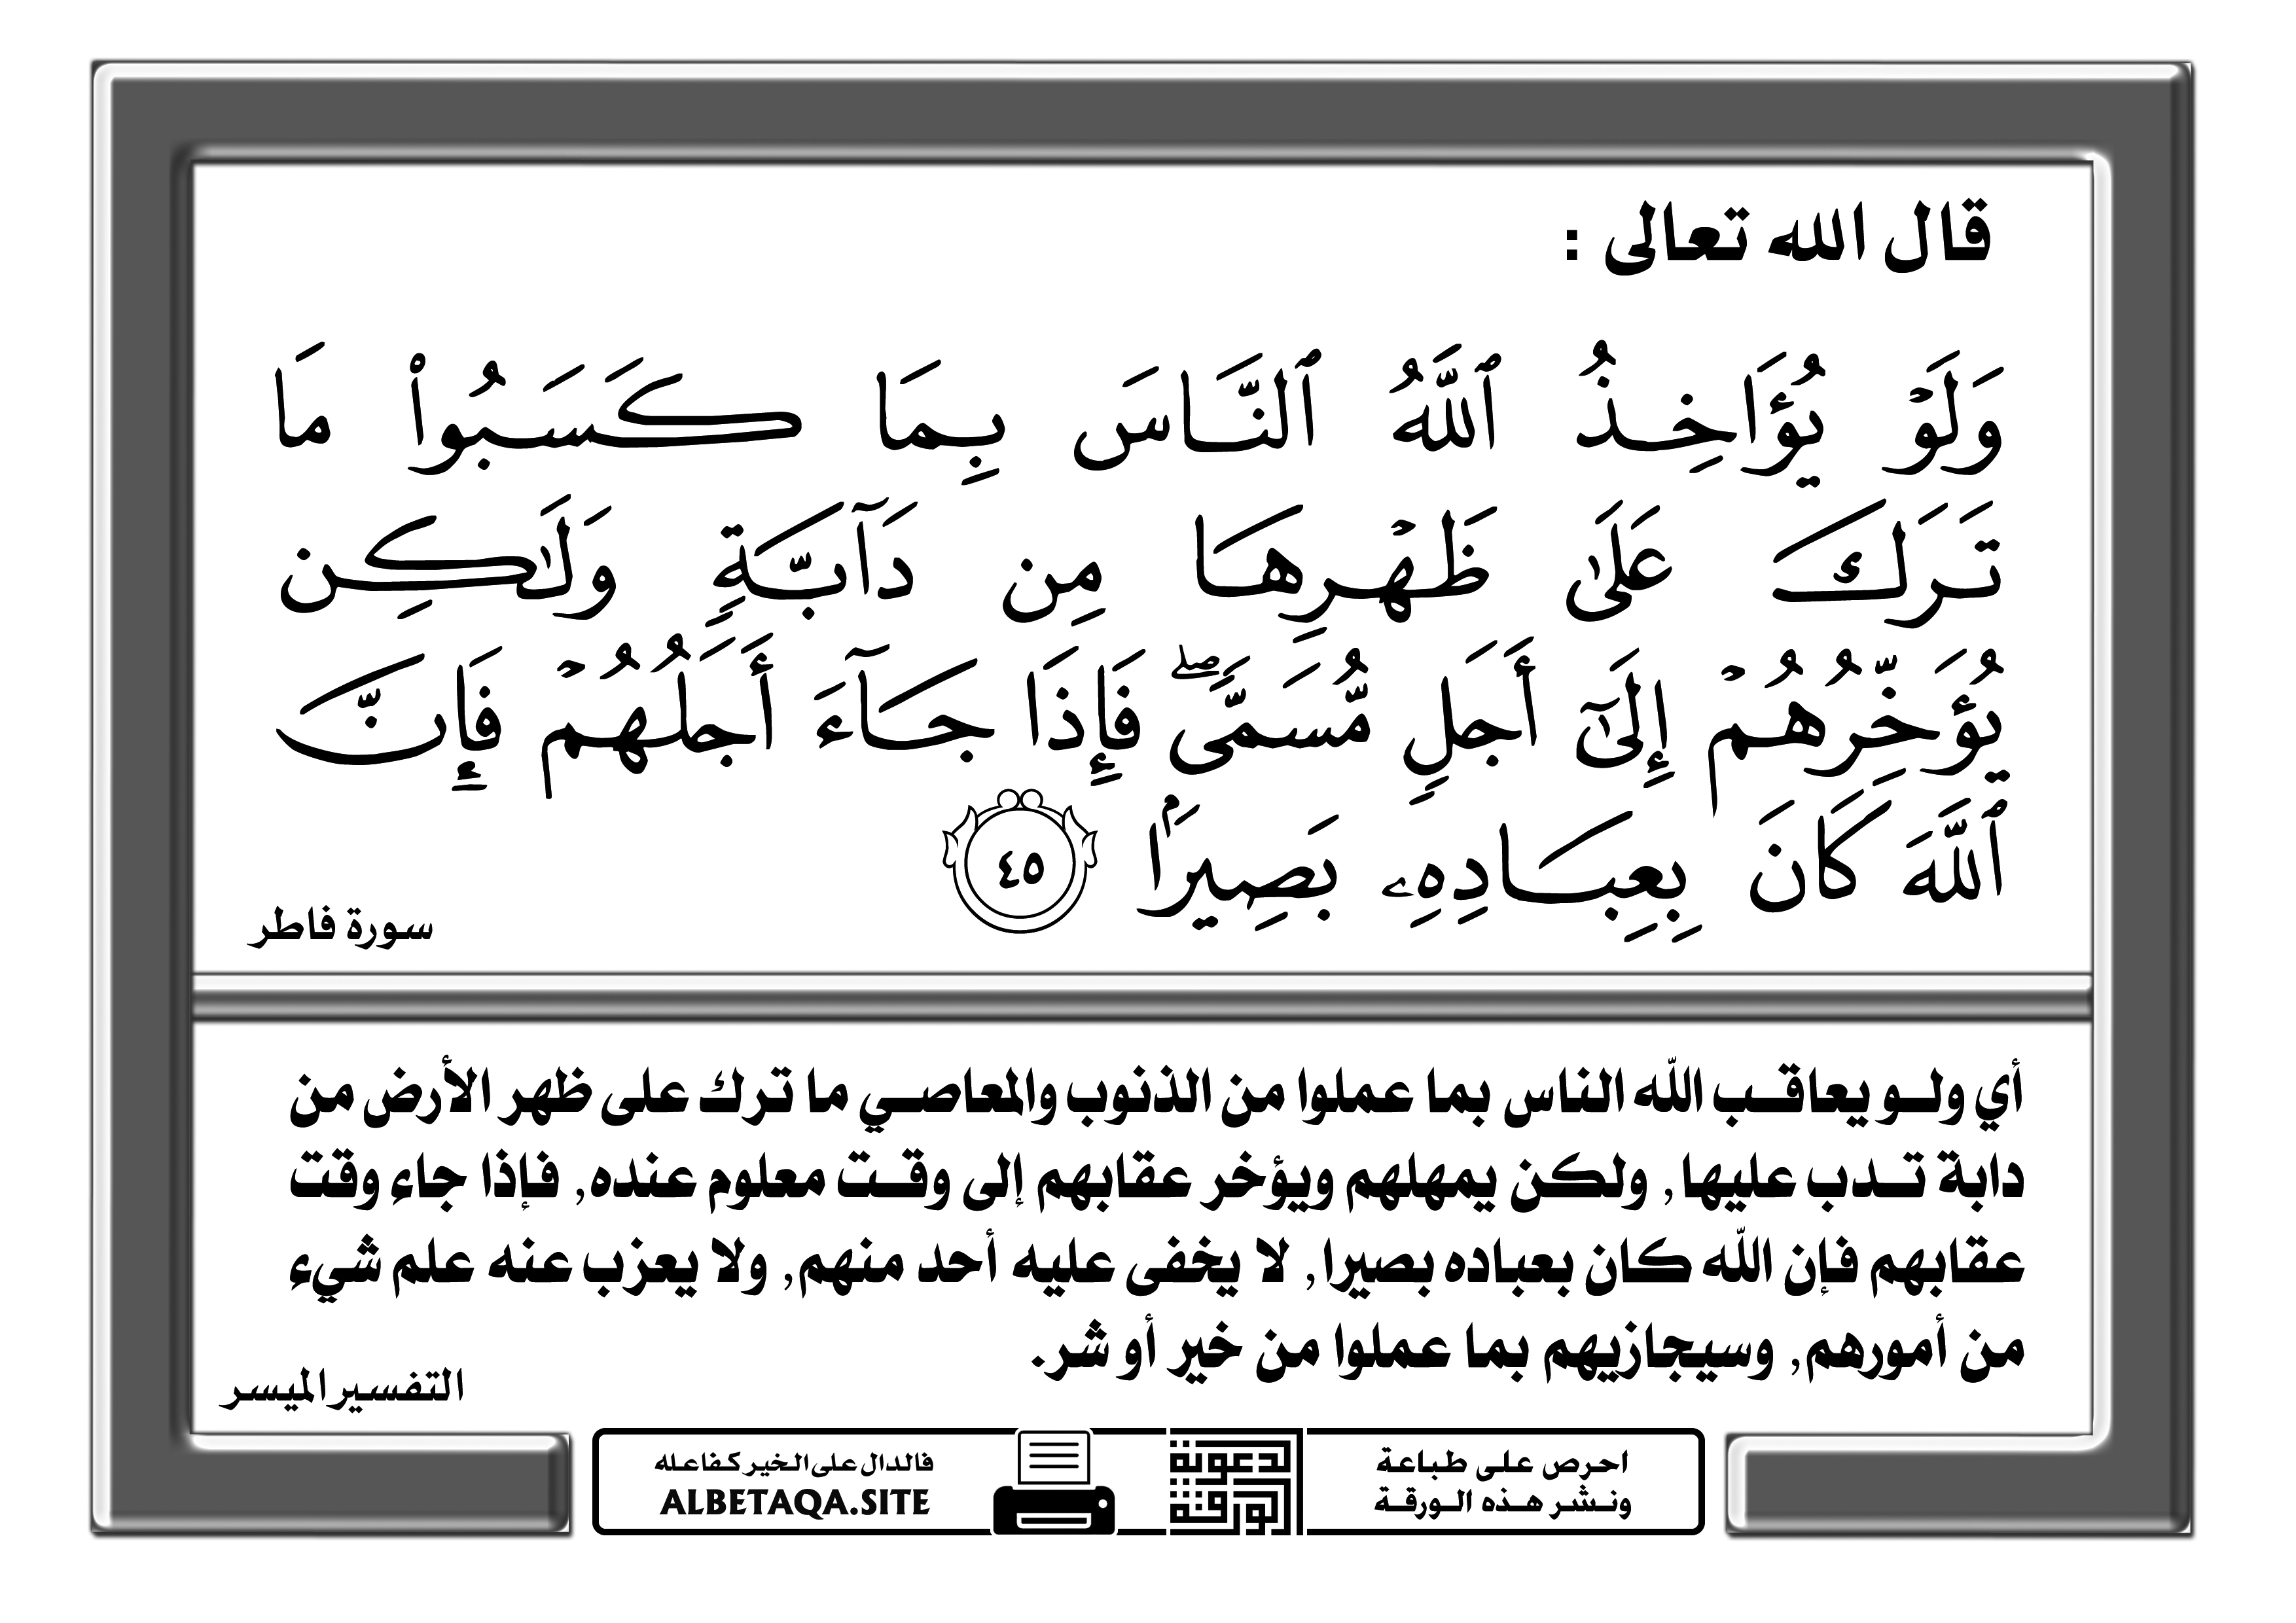 قال الله تعالى :
وَلَوۡ يُؤَاخِذُ ٱللَّهُ ٱلنَّاسَ بِمَا كَسَبُواْ مَا
تَرَكَ عَلَىٰ ظَهۡرِهَا مِن دَآبَّةٖ وَلَٰكِن
يُؤَخِّرُهُمۡ إِلَىٰٓ أَجَلٖ مُّسَمّٗىۖ فَإِذَا جَآءَ أَجَلُهُمۡ فَإِنَّ
ٱللَّهَ كَانَ بِعِبَادِهِۦ بَصِيرَۢا ٤٥
سورة فاطر
أي ولو يعاقب الله الناس بما عملوا من الذنوب والمعاصي ما ترك على ظهر الأرض من
دابة تدب عليها, ولكن يمهلهم ويؤخر عقابهم إلى وقت معلوم عنده, فإذا جاء وقت
عقابهم فإن الله كان بعباده بصيرا, لا يخفى عليه أحد منهم, ولا يعزب عنه علم شيء
من أمورهم, وسيجازيهم بما عملوا من خير أو شر.
التفسير الميسر
احرص على طباعة
ونشر هذه الورقة
الدعوية
الورقة
فالدال على الخير كفاعله
ALBETAQA.SITE